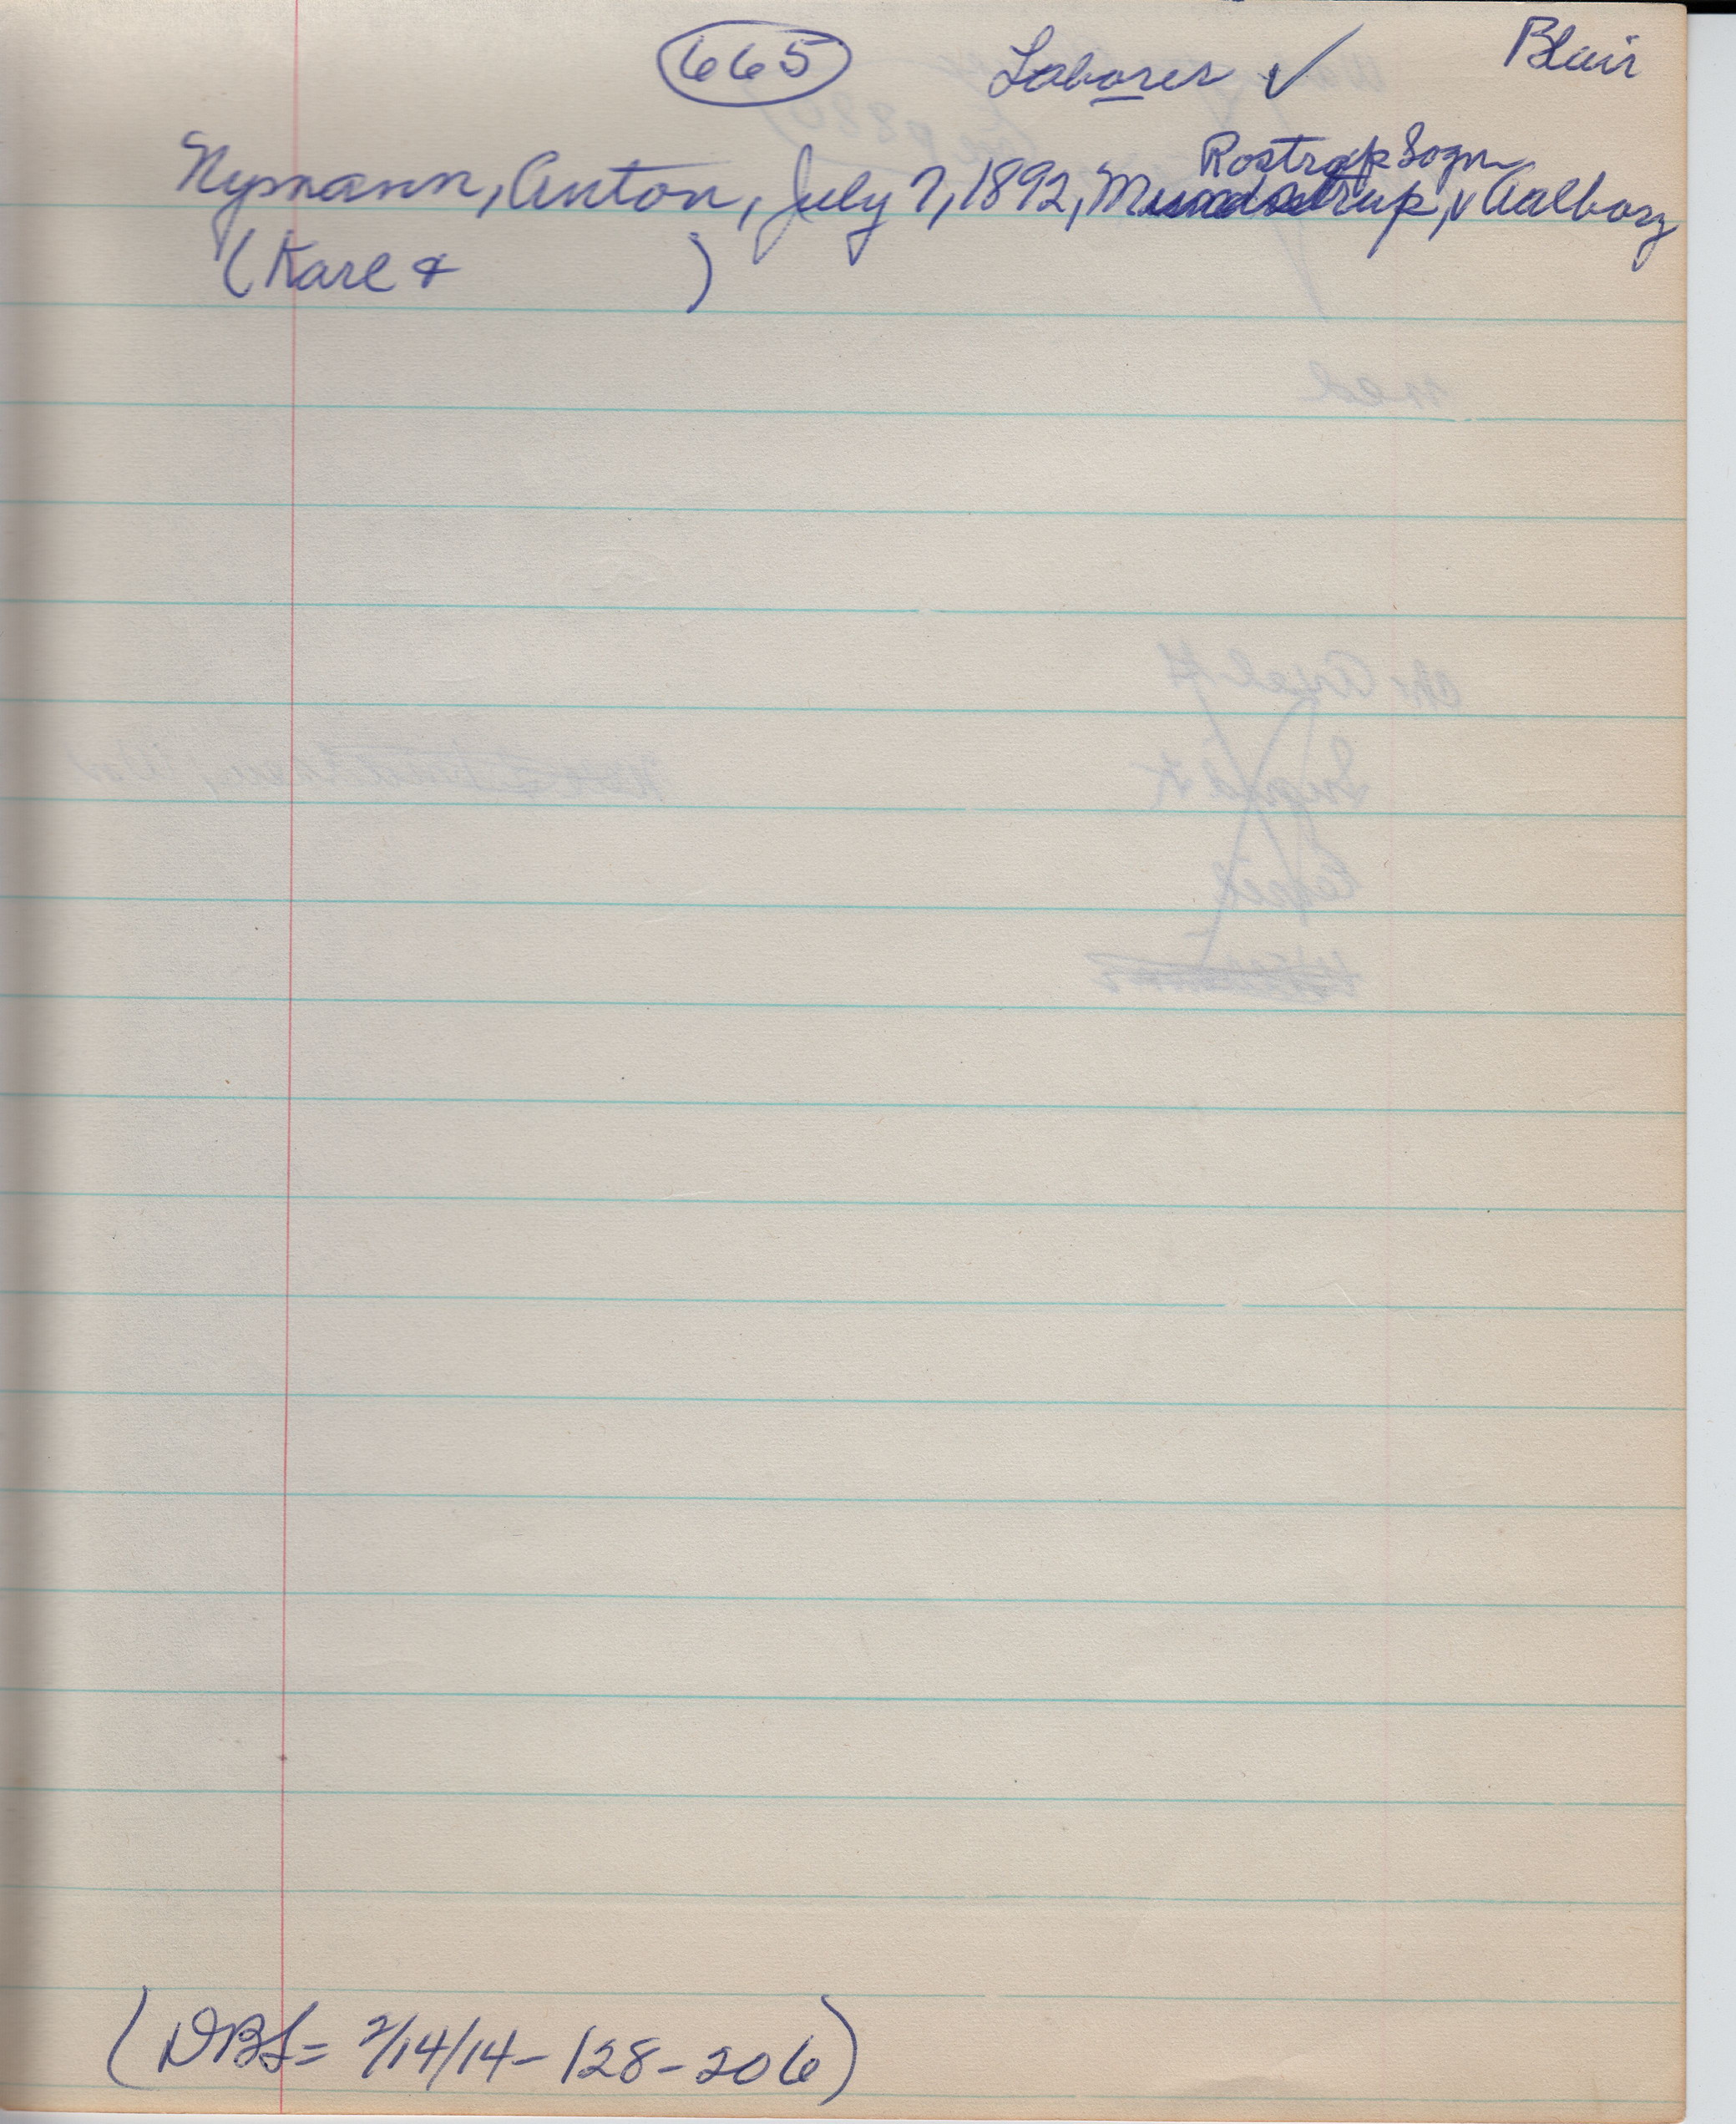 665 Laborer ✓ Blair
Rostrup Sogn
Nymann, Anton, July 7, 1892, Mundstrup, v Aalborg
(Karl & )
(DBS= 2/14/14-128-206)